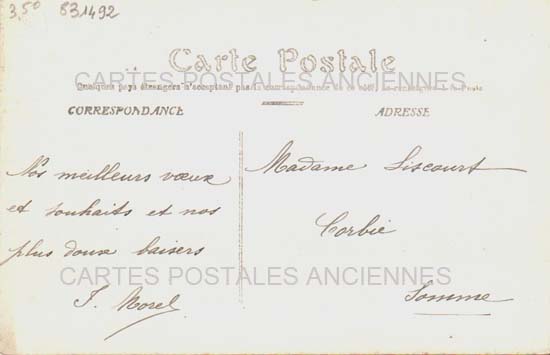 3,50 831492
Carte Postale
CARTES POSTALES ANCIENNES
Quelques pays étrangers n'acceptant pas la correspondance de ce côté, se renseigner à la Poste
CORRESPONDANCE
ADRESSE
Nos meilleurs vœux
et souhaits et nos
plus doux baisers
J. Morel
Madame Liscourt
Corbie
Somme
CARTES POSTALES ANCIENNES